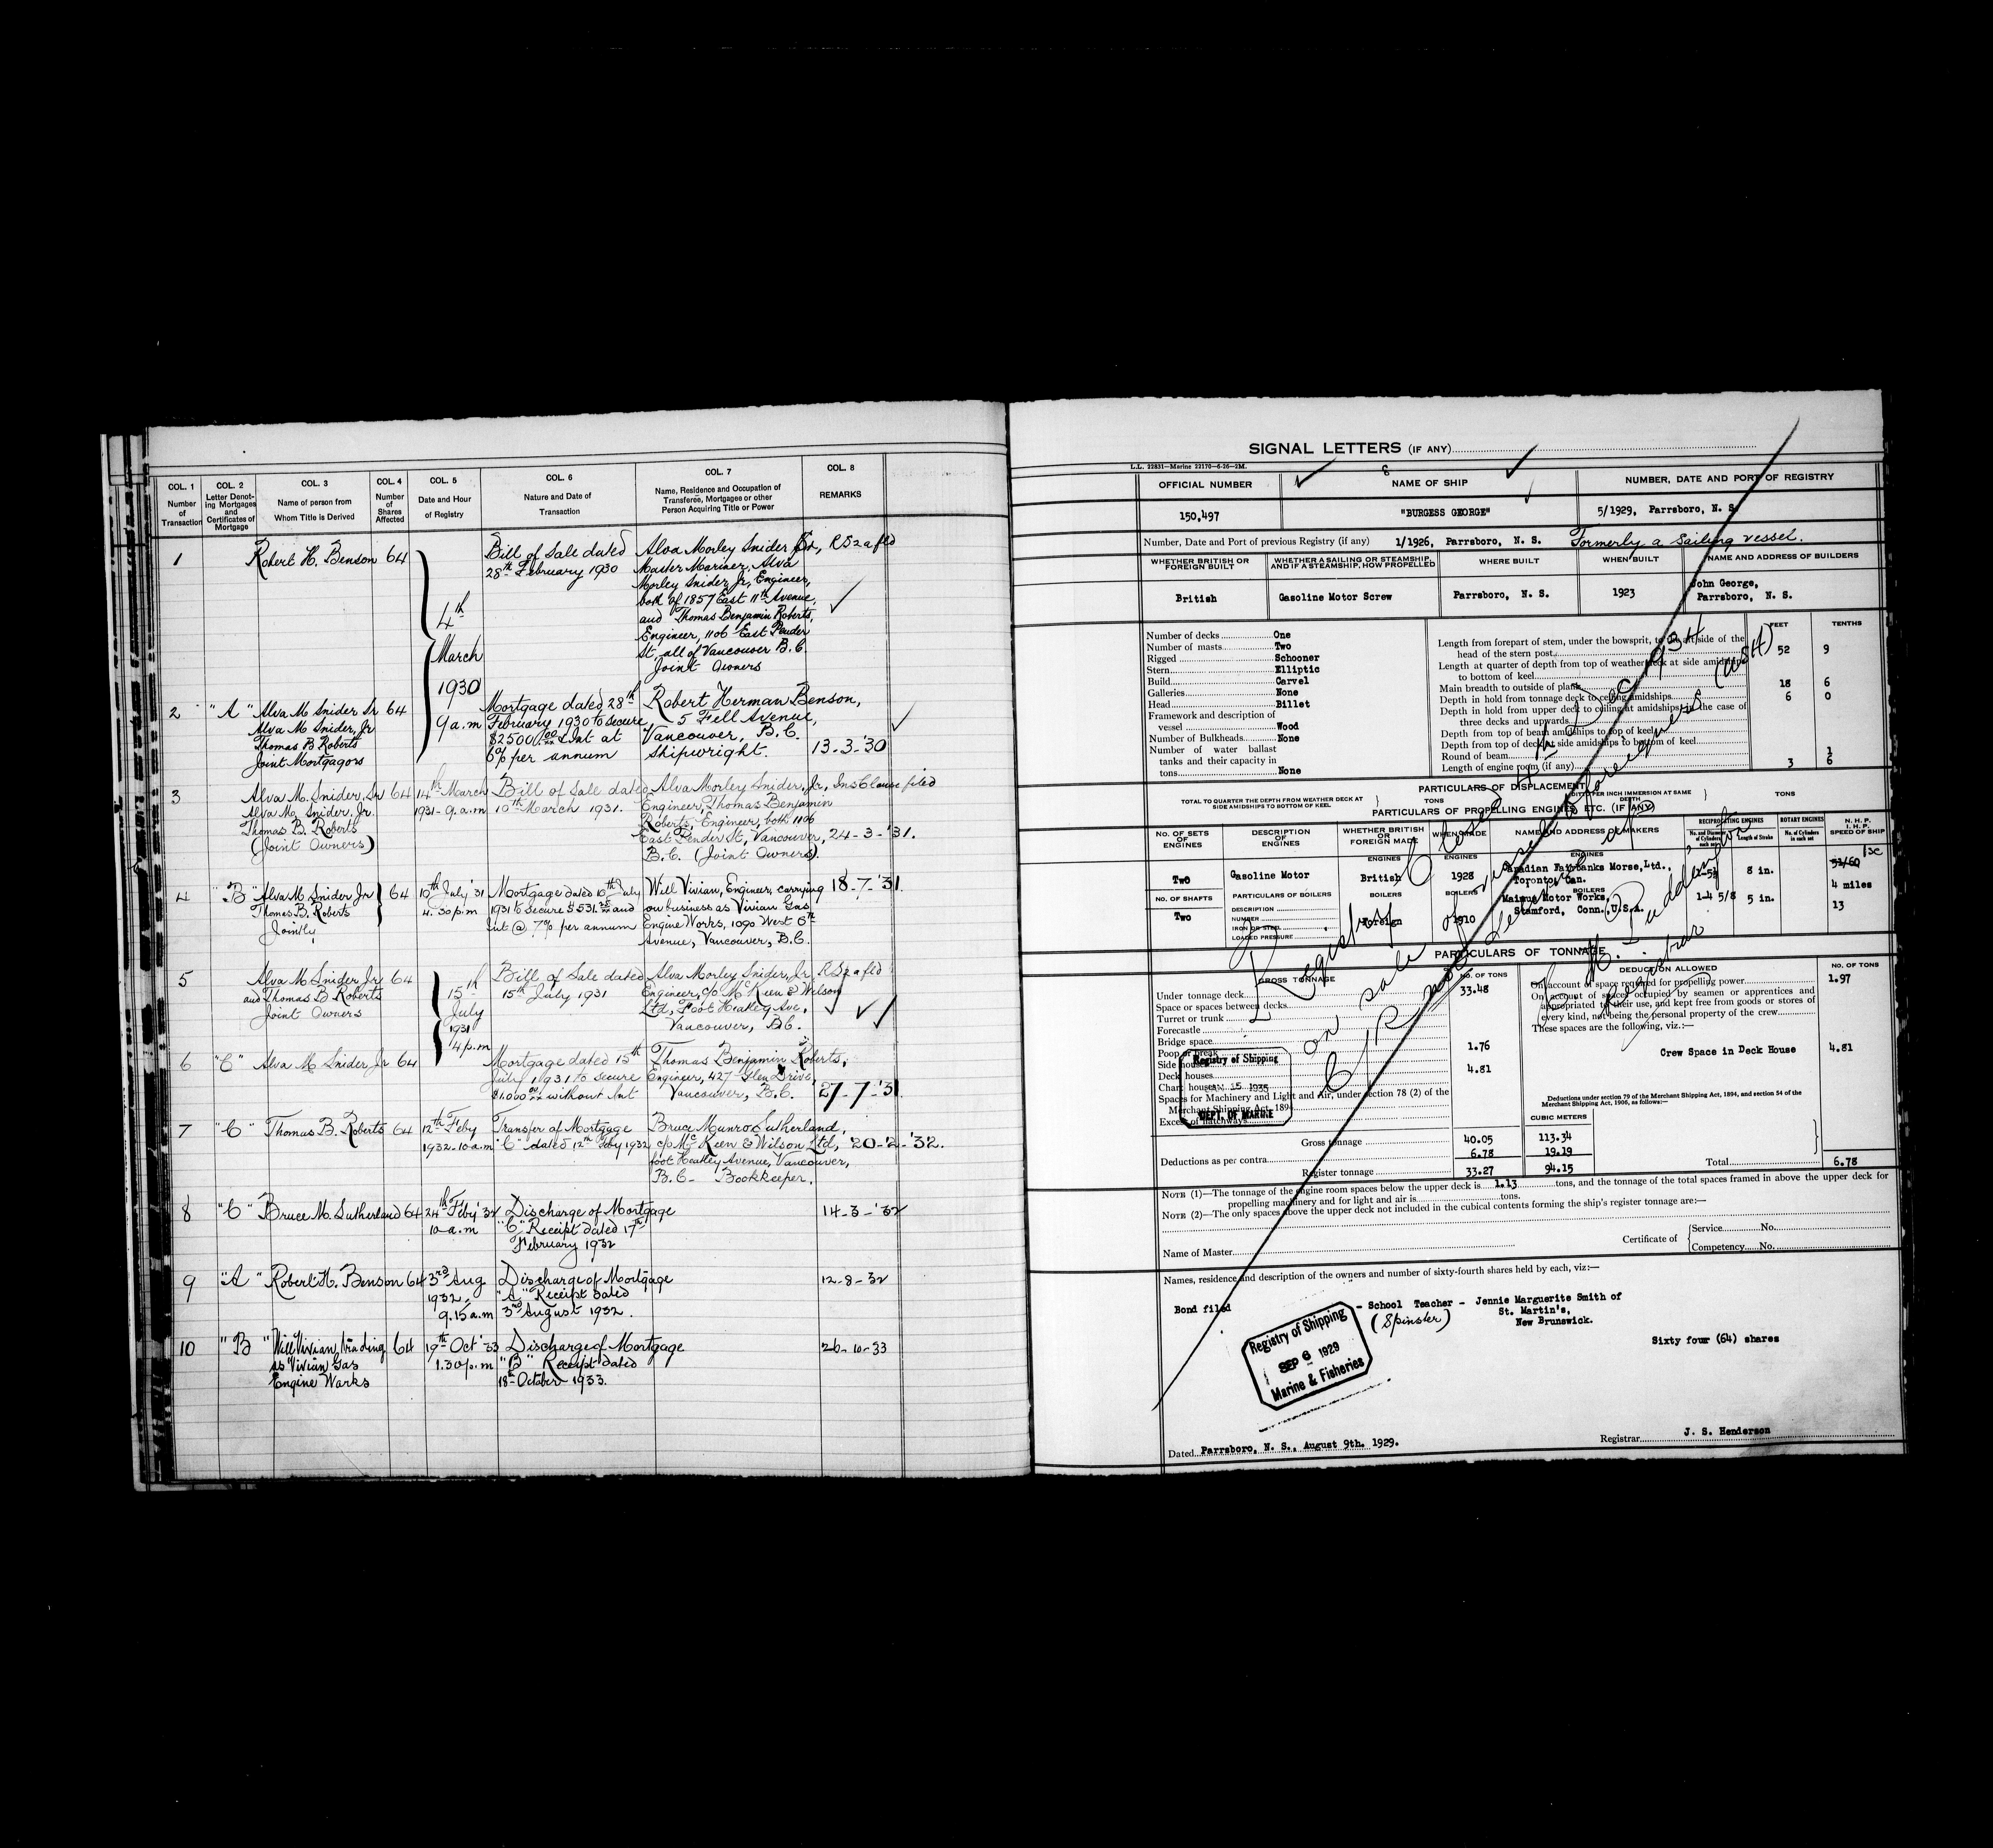 COL. 1
Number
of
Transaction
COL. 2
Letter Denot-
ing Mortgages
and
Certificates of
Mortgage
COL. 3
Name of person from
Whom Title is Derived
COL. 4
Number
of
Shares
Affected
COL. 5
Date and Hour
of Registry
COL. 6
Nature and Date of
Transaction
COL. 7
Name, Residence and Occupation of
Transferee, Mortgagee or other
Person Acquiring Title or Power
COL. 8
REMARKS
1
Robert H. Benson 64
4th
March
1930
9 a.m
Bill of Sale dated
28th February 1930
Alva Morley Snider Sr,
Master Mariner, Alva
Morley Snider Jr, Engineer,
both of 1857 East 11th Avenue,
and Thomas Benjamin Roberts,
Engineer, 1106 East Pender
St, all of Vancouver B.C.
Joint Owners
2 "A" Alva M Snider Sr 64
Alva M Snider, Jr
Thomas B Roberts
Joint Mortgagors
Mortgage dated 28th
February 1930 to secure
$2500.00 & Int at
6% per annum
Robert Herman Benson,
5 Fell Avenue,
Vancouver, B.C.
Shipwright. 13-3-'30
3
Alva M. Snider, Sr 64
Alva M. Snider, Jr.
Thomas B. Roberts
(Joint Owners)
14th March
1931 - 9.a.m
Bill of Sale dated
10th March 1931.
Alva Morley Snider, Jr., Ins Clause filed
Engineer, Thomas Benjamin
Roberts, Engineer, both 1106
East Pender St, Vancouver, 24-3-'31.
B.C. (Joint Owners).
4 "B" Alva M. Snider Jr 64
Thomas B. Roberts
Jointly
10th July '31
4.30 p.m
Mortgage dated 10th July
1931 to secure $531.25 and
Int @ 7% per annum
Will Vivian, Engineer, carrying 18-7-'31.
on business as Vivian Gas
Engine Works, 1090 West 6th
Avenue, Vancouver, B.C.
5
Alva M Snider, Jr 64
and Thomas B Roberts
Joint Owners
15th
July
1931
4 p.m
Bill of Sale dated
15th July 1931
Alva Morley Snider, Jr
Engineer, c/o McKeen & Wilson
Ltd, Foot Heatley Ave,
Vancouver, B.C.
6 "C" Alva M. Snider Jr 64
Mortgage dated 15th
July 1931 to secure
$1,000.00 without Int
Thomas Benjamin Roberts,
Engineer, 427 Glen Drive,
Vancouver, B.C. 27-7-'31
7 "C" Thomas B. Roberts 64
12th Feby
1932 - 10 a.m
Transfer of Mortgage
"C" dated 12th Feby 1932
Bruce Munro Sutherland,
c/o McKeen & Wilson Ltd, 20-2-'32.
foot Heatley Avenue, Vancouver,
B.C. - Bookkeeper.
8 "C" Bruce M. Sutherland 64
24th Feby '32
10 a.m
Discharge of Mortgage
"C" Receipt dated 17th
February 1932
14-3-'32
9 "A" Robert H. Benson 64
3rd Aug
1932,
9.15 a.m
Discharge of Mortgage
"A" Receipt dated
3rd August 1932.
12-8-32
10 "B" Will Vivian, trading 64
as Vivian Gas
Engine Works
19th Oct '33
1.30 p.m
Discharge of Mortgage
"B" Receipt dated
18th October 1933.
26-10-33
SIGNAL LETTERS (IF ANY)
L.L. 22831—Marine 22170—6-26—2M.
OFFICIAL NUMBER
NAME OF SHIP
NUMBER, DATE AND PORT OF REGISTRY
150,497
"BURGESS GEORGE"
5/1929, Parrsboro, N. S.
Number, Date and Port of previous Registry (if any) 1/1926, Parrsboro, N. S. Formerly a Sailing vessel.
WHETHER BRITISH OR
FOREIGN BUILT
WHETHER A SAILING OR STEAMSHIP
AND IF A STEAMSHIP, HOW PROPELLED
WHERE BUILT
WHEN BUILT
NAME AND ADDRESS OF BUILDERS
British
Gasoline Motor Screw
Parrsboro, N. S.
1923
John George,
Parrsboro, N. S.
Number of decks One
Number of masts Two
Rigged Schooner
Stern Elliptic
Build Carvel
Galleries None
Head Billet
Framework and description of
vessel Wood
Number of Bulkheads None
Number of water ballast
tanks and their capacity in
tons None
FEET
TENTHS
Length from forepart of stem, under the bowsprit, to the aft side of the
head of the stern post 52 9
Length at quarter of depth from top of weather deck at side amidships
to bottom of keel
Main breadth to outside of plank 18 6
Depth in hold from tonnage deck to ceiling amidships 6 0
Depth in hold from upper deck to ceiling at amidships, in the case of
three decks and upwards
Depth from top of beam amidships to top of keel
Depth from top of deck at side amidships to bottom of keel
Round of beam
Length of engine room (if any) 3 6
PARTICULARS OF DISPLACEMENT
TOTAL TO QUARTER THE DEPTH FROM WEATHER DECK AT
SIDE AMIDSHIPS TO BOTTOM OF KEEL
TONS
DITTO PER INCH IMMERSION AT SAME
DEPTH
TONS
PARTICULARS OF PROPELLING ENGINES, ETC. (IF ANY)
NO. OF SETS
OF
ENGINES
DESCRIPTION
OF
ENGINES
WHETHER BRITISH
OR
FOREIGN MADE
WHEN MADE
NAME AND ADDRESS OF MAKERS
RECIPROCATING ENGINES
No. and Diameter
of Cylinders in
each set
Length of Stroke
ROTARY ENGINES
No. of Cylinders
in each set
N. H. P.
I. H. P.
SPEED OF SHIP
ENGINES
ENGINES
ENGINES
Two
Gasoline Motor
British
1928
Canadian Fairbanks Morse, Ltd.,
Toronto, Can.
8 in.
4 miles
NO. OF SHAFTS
PARTICULARS OF BOILERS
BOILERS
BOILERS
BOILERS
Two
DESCRIPTION
NUMBER
IRON OR STEEL
LOADED PRESSURE
Foreign
1910
Maimus Motor Works,
Stamford, Conn., U.S.A.
1-4 5/8
5 in.
13
PARTICULARS OF TONNAGE
GROSS TONNAGE
NO. OF TONS
Under tonnage deck 33.48
Space or spaces between decks
Turret or trunk
Forecastle
Bridge space
Poop or break 1.76
Side houses
Deck houses 4.81
Chart house
Spaces for Machinery and Light and Air, under section 78 (2) of the
Merchant Shipping Act, 1894
Excess of hatchways
Gross tonnage 40.05 113.34
Deductions as per contra 6.78 19.19
Register tonnage 33.27 94.15
CUBIC METERS
DEDUCTION ALLOWED
NO. OF TONS
On account of space required for propelling power 1.97
On account of spaces occupied by seamen or apprentices and
appropriated to their use, and kept free from goods or stores of
every kind, not being the personal property of the crew
These spaces are the following, viz.:—
Crew Space in Deck House 4.81
Deductions under section 79 of the Merchant Shipping Act, 1894, and section 54 of the
Merchant Shipping Act, 1906, as follows:—
Total 6.78
Registry of Shipping
JAN 15 1935
DEPT. OF MARINE
NOTE (1)—The tonnage of the engine room spaces below the upper deck is 1.13 tons, and the tonnage of the total spaces framed in above the upper deck for
propelling machinery and for light and air is tons.
NOTE (2)—The only spaces above the upper deck not included in the cubical contents forming the ship's register tonnage are:—
Name of Master
Certificate of
Service No.
Competency No.
Names, residence and description of the owners and number of sixty-fourth shares held by each, viz:—
Bond filed
- School Teacher - Jennie Marguerite Smith of
(Spinster) St. Martin's,
New Brunswick.
Sixty four (64) shares
Registry of Shipping
SEP 6 1929
Marine & Fisheries
Dated Parrsboro, N. S., August 9th. 1929.
Registrar J. S. Henderson
Registry Closed 4th Dec 1934
on sale of vessel to foreigners (USA)
Registrar